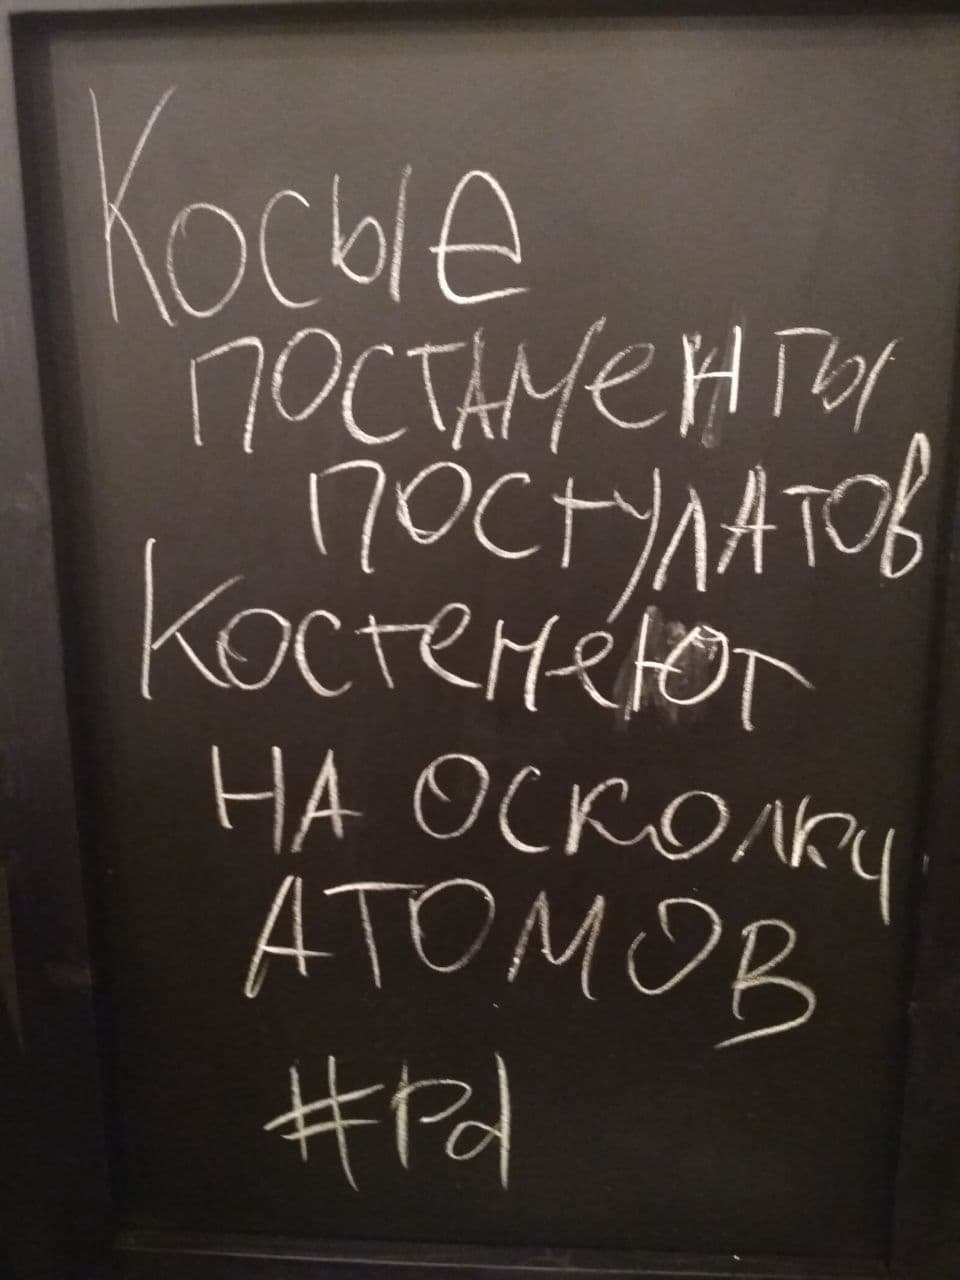 Косые
постаменты
постулатов
Костенеют
на осколку
атомов
#pd